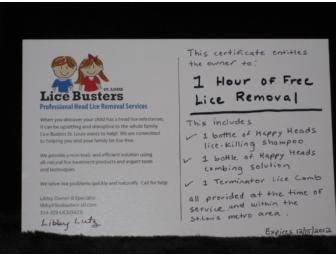 ST. LOUIS
Lice Busters
Professional Head Lice Removal Services
When you discover your child has a head lice infestation,
it can be upsetting and disruptive to the whole family.
Lice Busters St. Louis wants to help! We are committed
to helping you and your family be lice free.
We provide a non-toxic and efficient solution using
all-natural lice treatment products and expert tools
and techniques.
We solve lice problems quickly and naturally. Call for help!
Libby, Owner & Specialist
Libby Lutz
This certificate entitles
the owner to:
1 Hour of Free
Lice Removal
This includes
✓ 1 bottle of Happy Heads
lice-killing shampoo
✓ 1 bottle of Happy Heads
combing solution
✓ 1 Terminator Lice Comb
all provided at the time of
service and within the
St. Louis metro area.
Expires 12/15/2012